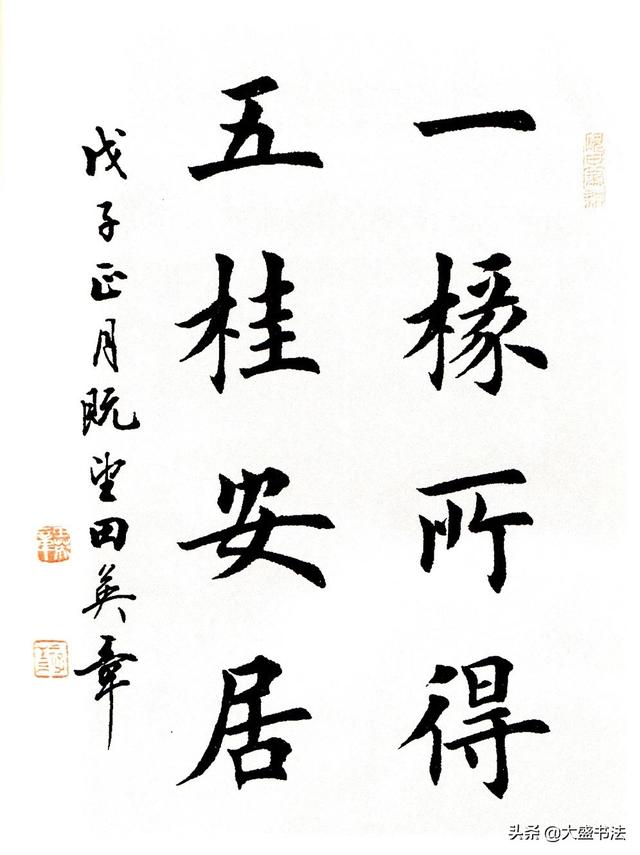 一椽所得
五桂安居
戊子正月既望田英章
头条@大盛书法